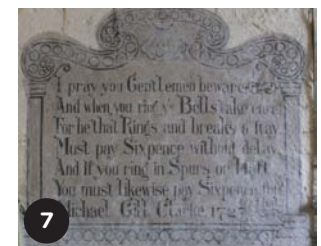 I pray you Gentlemen beware
And when you ring yͤ Bells take care
For he that Rings and breaks a Stay
Must pay Sixpence without delay
And if you ring in Spurs or Hatt
You must likewise pay Sixpence
Michael Clarke 1727
7